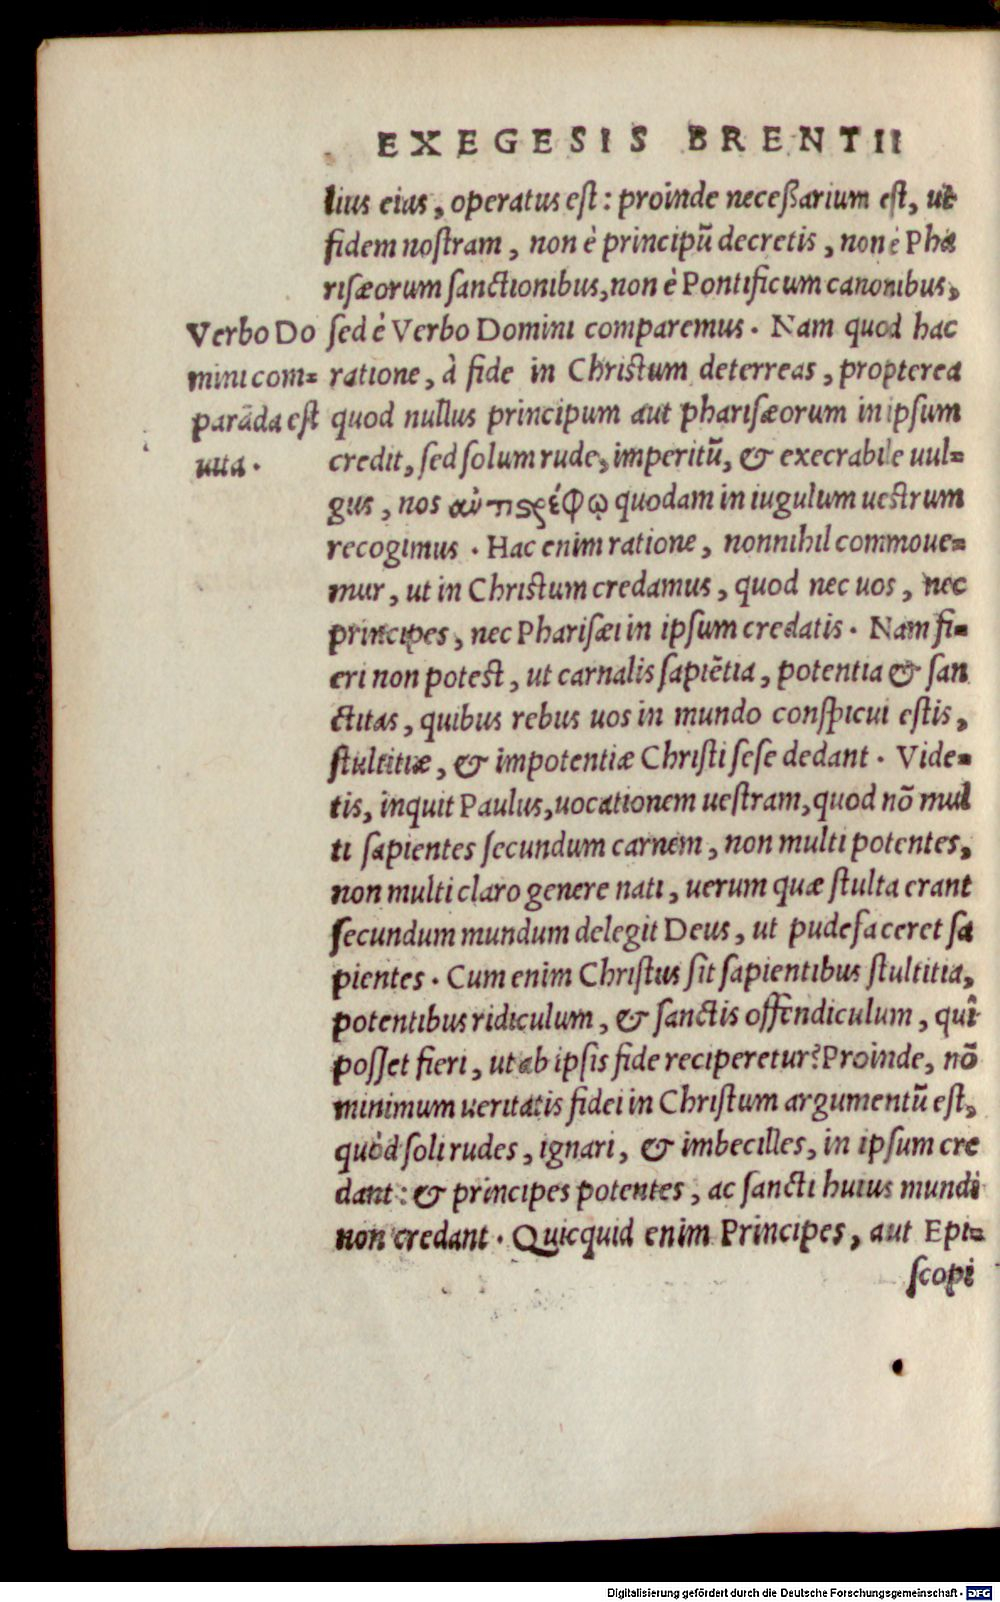 EXEGESIS BRENTII
lius eias, operatus eſt: proinde neceßarium eſt, ut
fidem noſtram, non è principũ decretis, non è Pha
riſæorum ſanctionibus, non è Pontificum canonibus,
ſed è Verbo Domini comparemus. Nam quod hac
ratione, à fide in Chriſtum deterreas, propterea
quod nullus principum aut phariſæorum in ipſum
credit, ſed ſolum rude, imperitũ, & execrabile uul=
gus, nos quodam in iugulum ueſtrum
recogimus. Hac enim ratione, nonnihil commoue=
mur, ut in Chriſtum credamus, quod nec uos, nec
principes, nec Phariſæi in ipſum credatis. Nam fi=
eri non poteſt, ut carnalis ſapiẽtia, potentia & ſan
ctitas, quibus rebus uos in mundo conſpicui eſtis,
ſtultitiæ, & impotentiæ Chriſti ſeſe dedant. Vide=
tis, inquit Paulus, uocationem ueſtram, quod nõ mul
ti ſapientes ſecundum carnem, non multi potentes,
non multi claro genere nati, uerum quæ ſtulta erant
ſecundum mundum delegit Deus, ut pudefaceret ſa
pientes. Cum enim Chriſtus ſit ſapientibus ſtultitia,
potentibus ridiculum, & ſanctis offendiculum, quî
poſſet fieri, ut ab ipſis fide reciperetur? Proinde, nõ
minimum ueritatis fidei in Chriſtum argumentũ eſt,
quòd ſoli rudes, ignari, & imbecilles, in ipſum cre
dant: & principes potentes, ac ſancti huius mundi
non credant. Quicquid enim Principes, aut Epi=
ſcopi
Verbo Do
mini com=
parãda eſt
uita.
Digitalisierung gefördert durch die Deutsche Forschungsgemeinschaft - DFG